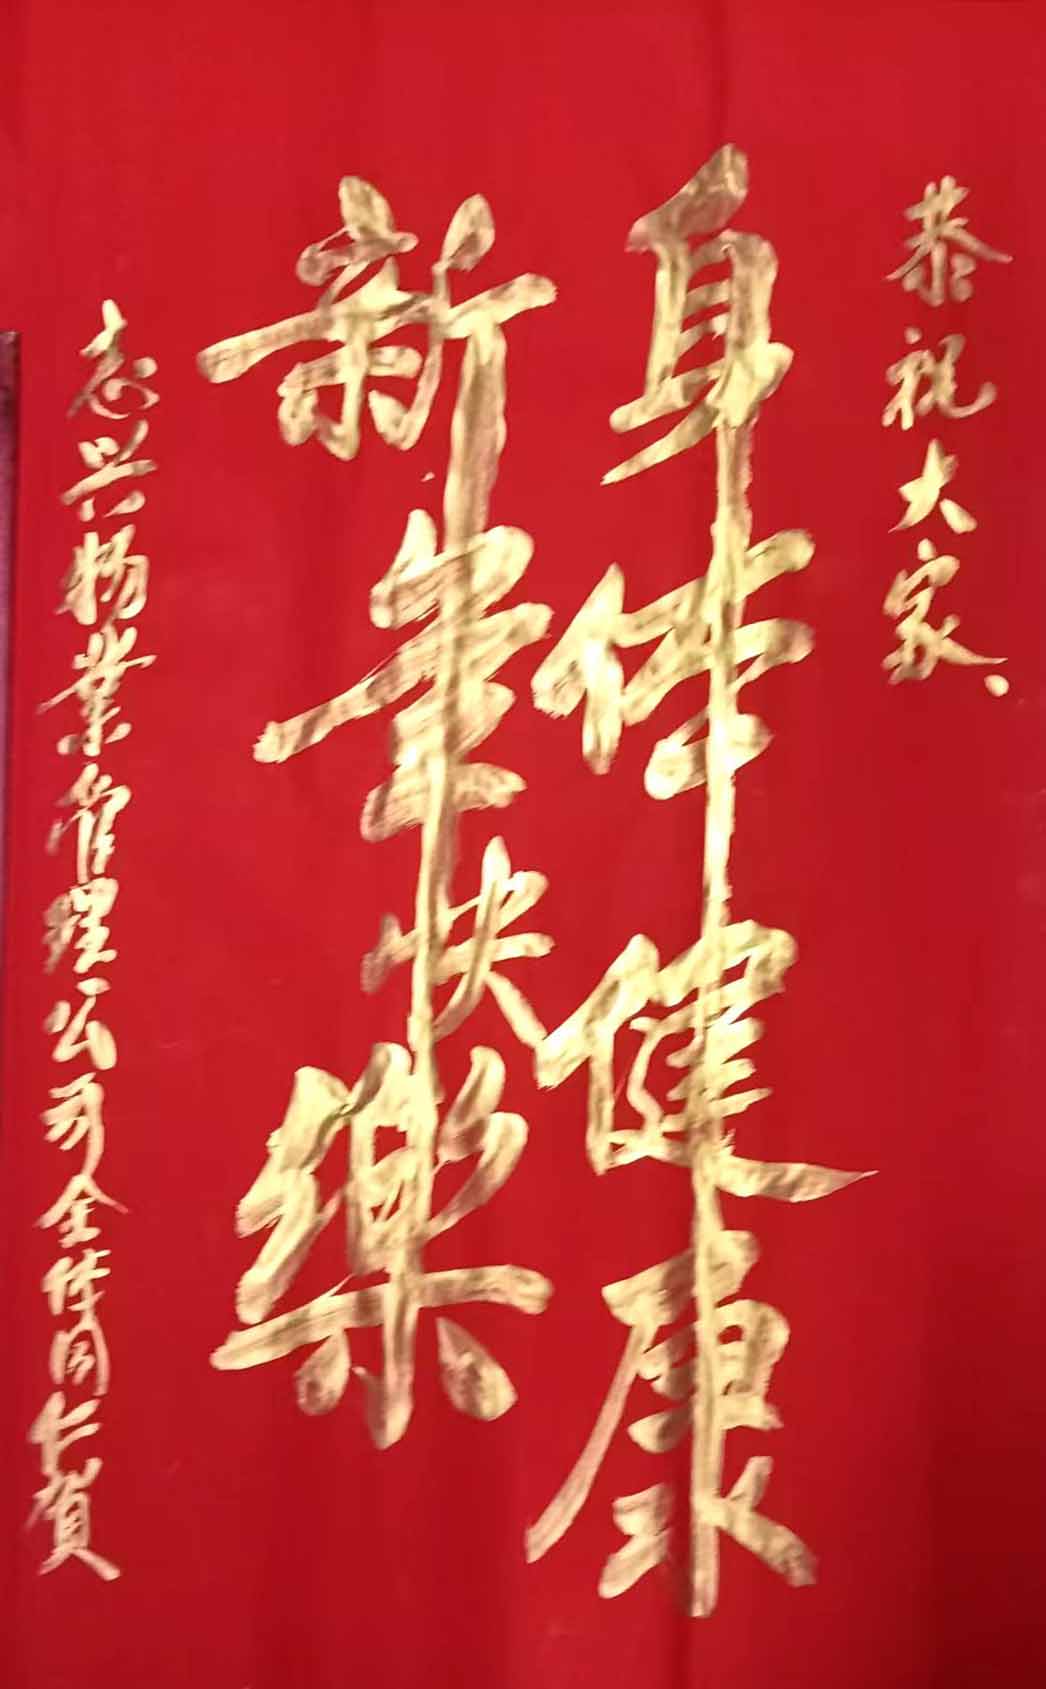 恭祝大家、
身体健康
新年快樂
志兴物業管理公司全体同仁賀